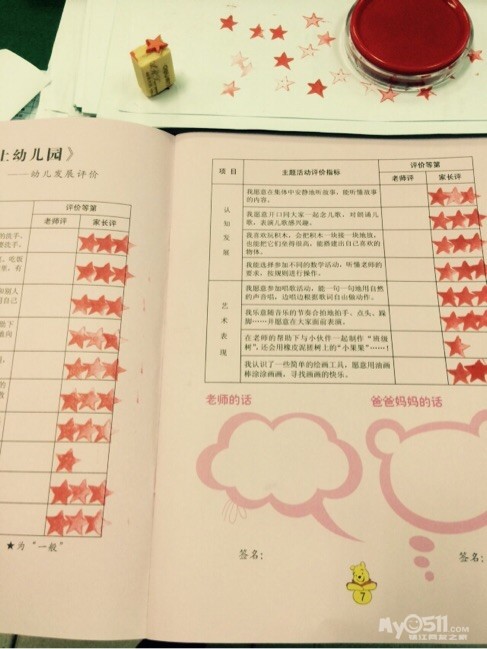 上幼儿园》
——幼儿发展评价
评价等第
家长评
老师评
洗手、
吃饭
★为“一般”
项 目
主题活动评价指标
评价等第
老师评
家长评
认知发展
我愿意在集体中安静地听故事，能听懂故事
的内容。
我愿意开口同大家一起念儿歌，对朗诵儿
歌、表演儿歌感兴趣。
我喜欢玩积木，会把积木一块接一块地放，
也能把它们垒得很高，能搭建出自己喜欢的
物体。
我能选择参加不同的数学活动，听懂老师的
要求，按规则进行操作。
艺术表现
我愿意参加唱歌活动，能一句一句地用自然
的声音唱，边唱边根据歌词自由做动作。
我乐意随音乐的节奏合拍地拍手、点头、跺
脚……并愿意在大家面前表演。
在老师的帮助下与小伙伴一起制作“班级
树”，还会用橡皮泥搓树上的“小果果”……！
我认识了一些简单的绘画工具，愿意用油画
棒涂涂画画，寻找画画的快乐。
老师的话
爸爸妈妈的话
签名：
签名：
7
My0511.com